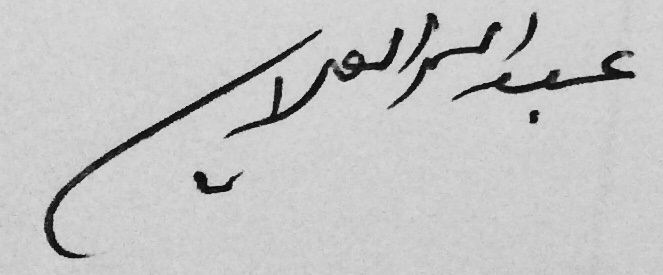 عبدالله العلايلي